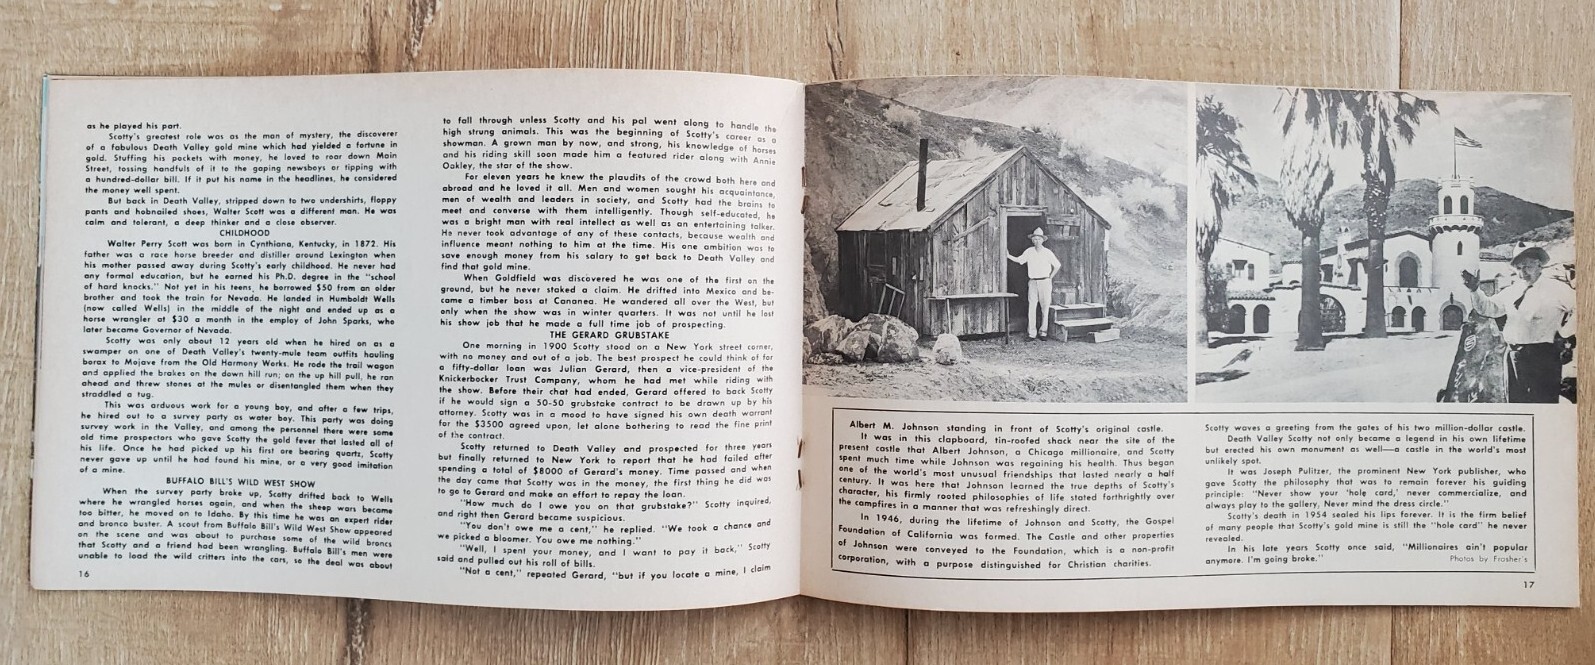 as he played his part.
Scotty's greatest role was as the man of mystery, the discoverer
of a fabulous Death Valley gold mine which had yielded a fortune in
gold. Stuffing his pockets with money, he loved to roar down Main
Street, tossing handfuls of it to the gaping newsboys or tipping with
a hundred-dollar bill. If it put his name in the headlines, he considered
the money well spent.
But back in Death Valley, stripped down to two undershirts, floppy
pants and hobnailed shoes, Walter Scott was a different man. He was
calm and tolerant, a deep thinker and a close observer.
CHILDHOOD
Walter Perry Scott was born in Cynthiana, Kentucky, in 1872. His
father was a race horse breeder and distiller around Lexington when
his mother passed away during Scotty's early childhood. He never had
any formal education, but he earned his Ph.D. degree in the "school
of hard knocks." Not yet in his teens, he borrowed $50 from an older
brother and took the train for Nevada. He landed in Humboldt Wells
(now called Wells) in the middle of the night and ended up as a
horse wrangler at $30 a month in the employ of John Sparks, who
later became Governor of Nevada.
Scotty was only about 12 years old when he hired on as a
swamper on one of Death Valley's twenty-mule team outfits hauling
borax to Mojave from the Old Harmony Works. He rode the trail wagon
and applied the brakes on the down hill run; on the up hill pull, he ran
ahead and threw stones at the mules or disentangled them when they
straddled a tug.
This was arduous work for a young boy, and after a few trips,
he hired out to a survey party as water boy. This party was doing
survey work in the Valley, and among the personnel there were some
old time prospectors who gave Scotty the gold fever that lasted all of
his life. Once he had picked up his first ore bearing quartz, Scotty
never gave up until he had found his mine, or a very good imitation
of a mine.
BUFFALO BILL'S WILD WEST SHOW
When the survey party broke up, Scotty drifted back to Wells
where he wrangled horses again, and when the sheep wars became
too bitter, he moved on to Idaho. By this time he was an expert rider
and bronco buster. A scout from Buffalo Bill's Wild West Show appeared
on the scene and was about to purchase some of the wild broncs
that Scotty and a friend had been wrangling. Buffalo Bill's men were
unable to load the wild critters into the cars, so the deal was about
16
to fall through unless Scotty and his pal went along to handle the
high strung animals. This was the beginning of Scotty's career as a
showman. A grown man by now, and strong, his knowledge of horses
and his riding skill soon made him a featured rider along with Annie
Oakley, the star of the show.
For eleven years he knew the plaudits of the crowd both here and
abroad and he loved it all. Men and women sought his acquaintance,
men of wealth and leaders in society, and Scotty had the brains to
meet and converse with them intelligently. Though self-educated, he
was a bright man with real intellect as well as an entertaining talker.
He never took advantage of any of these contacts, because wealth and
influence meant nothing to him at the time. His one ambition was to
save enough money from his salary to get back to Death Valley and
find that gold mine.
When Goldfield was discovered he was one of the first on the
ground, but he never staked a claim. He drifted into Mexico and be-
came a timber boss at Cananea. He wandered all over the West, but
only when the show was in winter quarters. It was not until he lost
his show job that he made a full time job of prospecting.
THE GERARD GRUBSTAKE
One morning in 1900 Scotty stood on a New York street corner,
with no money and out of a job. The best prospect he could think of for
a fifty-dollar loan was Julian Gerard, then a vice-president of the
Knickerbocker Trust Company, whom he had met while riding with
the show. Before their chat had ended, Gerard offered to back Scotty
if he would sign a 50-50 grubstake contract to be drawn up by his
attorney. Scotty was in a mood to have signed his own death warrant
for the $3500 agreed upon, let alone bothering to read the fine print
of the contract.
Scotty returned to Death Valley and prospected for three years
but finally returned to New York to report that he had failed after
spending a total of $8000 of Gerard's money. Time passed and when
the day came that Scotty was in the money, the first thing he did was
to go to Gerard and make an effort to repay the loan.
"How much do I owe you on that grubstake?" Scotty inquired,
and right then Gerard became suspicious.
"You don't owe me a cent," he replied. "We took a chance and
we picked a bloomer. You owe me nothing."
"Well, I spent your money, and I want to pay it back," Scotty
said and pulled out his roll of bills.
"Not a cent," repeated Gerard, "but if you locate a mine, I claim
Albert M. Johnson standing in front of Scotty's original castle.
It was in this clapboard, tin-roofed shack near the site of the
present castle that Albert Johnson, a Chicago millionaire, and Scotty
spent much time while Johnson was regaining his health. Thus began
one of the world's most unusual friendships that lasted nearly a half
century. It was here that Johnson learned the true depths of Scotty's
character, his firmly rooted philosophies of life stated forthrightly over
the campfires in a manner that was refreshingly direct.
In 1946, during the lifetime of Johnson and Scotty, the Gospel
Foundation of California was formed. The Castle and other properties
of Johnson were conveyed to the Foundation, which is a non-profit
corporation, with a purpose distinguished for Christian charities.
Scotty waves a greeting from the gates of his two million-dollar castle.
Death Valley Scotty not only became a legend in his own lifetime
but erected his own monument as well—a castle in the world's most
unlikely spot.
It was Joseph Pulitzer, the prominent New York publisher, who
gave Scotty the philosophy that was to remain forever his guiding
principle: "Never show your 'hole card,' never commercialize, and
always play to the gallery, Never mind the dress circle."
Scotty's death in 1954 sealed his lips forever. It is the firm belief
of many people that Scotty's gold mine is still the "hole card" he never
revealed.
In his late years Scotty once said, "Millionaires ain't popular
anymore. I'm going broke."
Photos by Frasher's
17